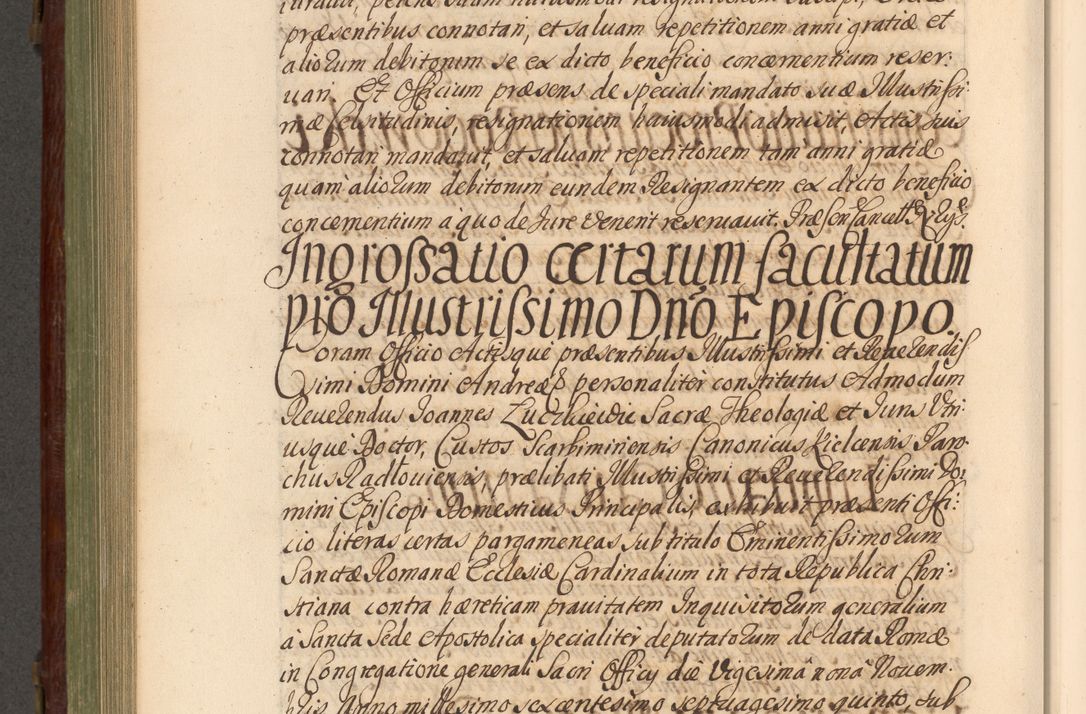 præsentibus connotari, et saluam repetitionem anni gratiæ et
aliorum debitorum se ex dicto beneficio concernentium reser:
uari. Et Officium præsens de speciali mandato suæ Illustrissi
mæ Celsitudinis, resignationem huiusmodi admisit, Actis suis
connotari mandauit, et saluam repetitionem tam anni gratiæ
quam aliorum debitorum eundem Resignantem ex dicto beneficio
concernentium à quo de Jure venerit reseruauit. Præsen
Ingrossatio certarum facultatum
pro Illustrissimo Dno Episcopo.
Coram Officio Actisque præsentibus Illustrissimi et Reuerendis
simi Domini Andreæ personaliter constitutus Admodum
Reuerendus Joannes Luczkieidic Sacræ Theologiæ et Juris Vtri:
usque Doctor, Custos Scarbimiriensis Canonicus Kielcensis Paro
chus Radłouiensis, prælibati Illustrissimi et Reuerendissimi Do:
mini Episcopi Domesticus Principalis, exhibuit præsenti Offi:
cio literas certas pargameneas sub titulo Eminentissimorum
Sanctæ Romanæ Ecclesiæ Cardinalium in tota Republica Chri:
stiana contra hæreticam prauitatem Inquisitorum generalium
à Sancta Sede Apostolica specialiter deputatorum de data Romæ
in Congregatione generali Sacri Officij die Vigesima nona Nouem.
bris Anno millesimo sexcentesimo septuagesimo quinto, sub